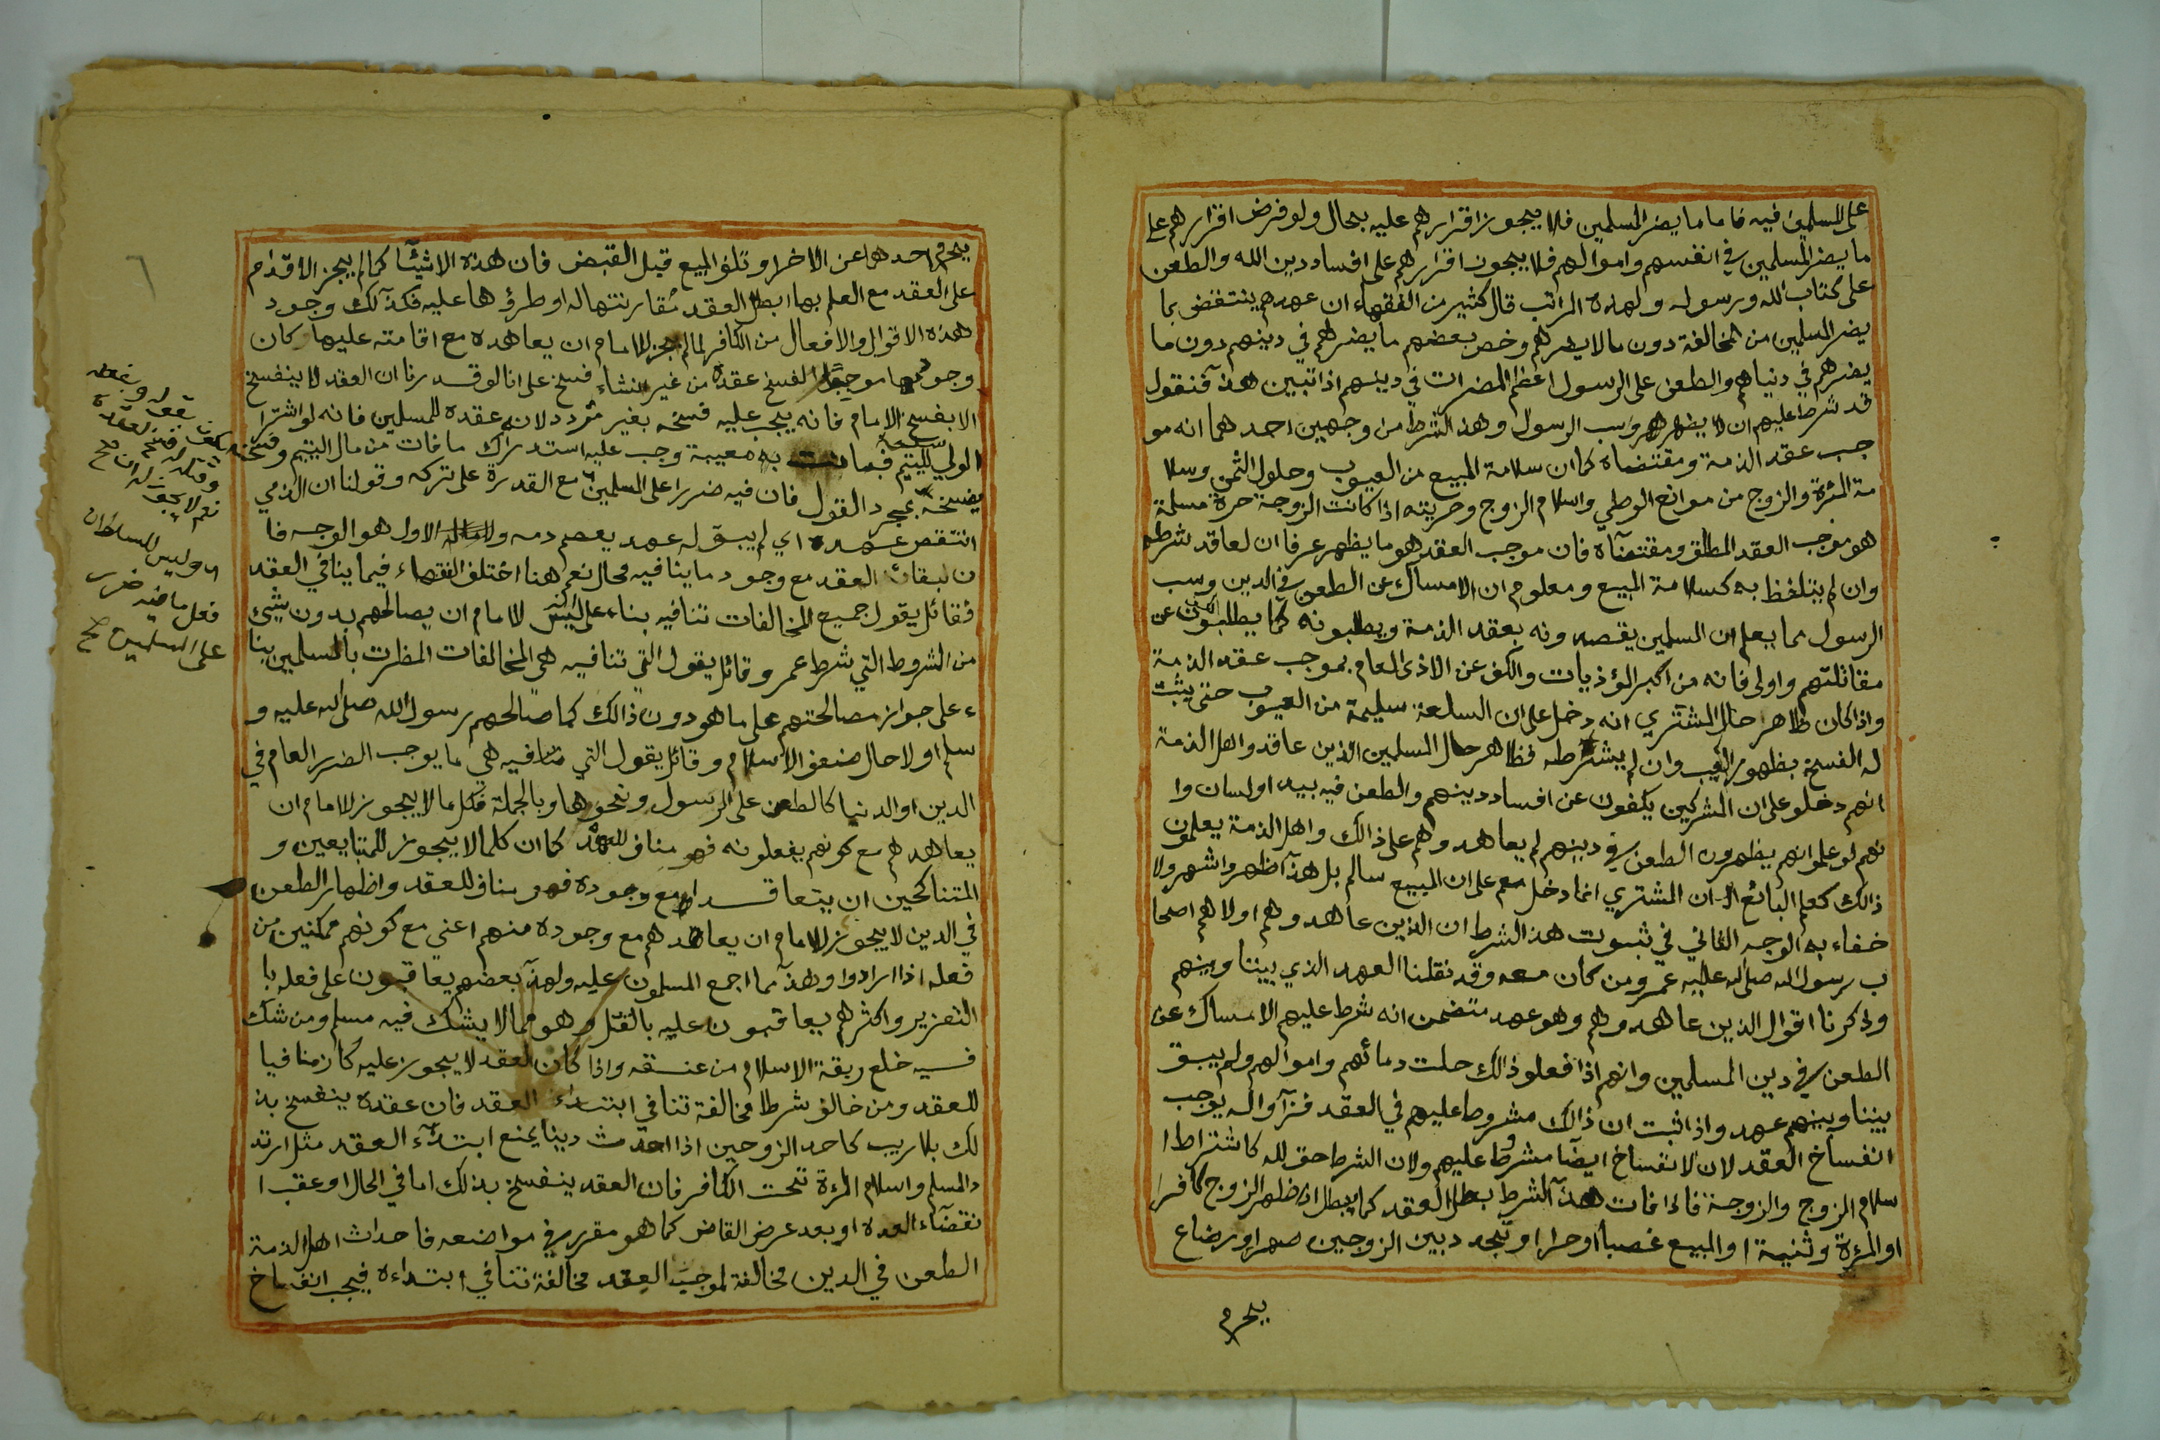 على المسلمين فيه فاما ما يضر المسلمين فلا يجوز اقرارهم عليه بحال ولو فرض اقرارهم على
ما يضر المسلمين في انفسهم واموالهم فلا يجوز اقرارهم على افساد دين الله والطعن
على كتاب الله ورسوله ولهذه المراتب قال كثير من الفقهاء ان عهدهم ينتقض بما
يضر المسلمين من المخالفة دون ما لا يضرهم وخص بعضهم ما يضرهم في دينهم دون ما
يضرهم في دنياهم والطعن على الرسول اعظم المضرات في دينهم اذا تبين هذا فنقول
قد شرط عليهم ان لا يظهروا سب الرسول وهذا الشرط من وجهين احدهما انه مو
جب عقد الذمة ومقتضاه كما ان سلامة المبيع من العيوب وحلول الثمن وسلا
مة المرءة والزوج من موانع الوطي واسلام الزوج وحريته اذا كانت الزوجة حرة مسلمة
هو موجب العقد المطلق ومقتضاه فان موجب العقد هو ما يظهر عرفا ان لعاقد شرطه
وان لم يتلفظ به كسلامة المبيع ومعلوم ان الامساك عن الطعن في الدين وسب
الرسول مما يعلم ان المسلمين يقصدونه بعقد الذمة ويطلبونه كما يطلبون الكف عن
مقاتلتهم واولى فانه من اكبر المؤذيات والكف عن الاذى العام بموجب عقد الذمة
واذا كان ظاهر حال المشتري انه دخل على ان السلعة سليمة من العيوب حتى يثبت
له الفسخ بظهور العيب وان لم يشترطه فظاهر حال المسلمين الذين عاقدوا اهل الذمة
انهم دخلو على ان المشركين يكفون عن افساد دينهم والطعن فيه بيد او لسان وا
نهم لو علموا انهم يظهرون الطعن في دينهم لم يعاهدوهم على ذالك واهل الذمة يعلمون
ذالك كعلم البائع ان المشتري انما دخل معه على ان المبيع سالم بل هذا اظهر واشهر ولا
خفاء به الوجه الثاني في ثبوت هذا الشرط ان الذين عاهدوهم اولا هم اصحا
ب رسول الله صلى الله عليه عمر ومن كان معه وقد نقلنا العهد الذي بيننا وبينهم
وذكرنا اقوال الذين عاهدوهم وهو عهد متضمن انه شرط عليهم الامساك عن
الطعن في دين المسلمين وانهم اذا فعلو ذالك حلت دمائهم واموالهم ولم يبق
بيننا وبينهم عهد واذا ثبت ان ذالك مشروط عليهم في العقد فزواله يوجب
انفساخ العقد لان لانفساخ ايضا مشروط عليهم ولان الشرط حق لله كاشتراط ا
سلام الزوج والزوجة فاذا فات هذا الشرط بطل العقد كما يبطل اذا ظهر الزوج كافرا
او المرءة وثنية او المبيع غصبا او حرا او تجدد بين الزوجين صهر او رضاع
يحرم
يحرم احدهما عن الاخر او تلف المبيع قبل القبض فان هذه الاشيئا كما لم يجز الاقدام
على العقد مع العلم بها ابطل العقد مقارنتها له او طرؤها عليه فكذآلك وجود
هذه الاقوال والافعال من الكافر لما لم يجز للامام ان يعاهده مع اقامته عليها كان
وجودها موجبا لفسخ عقده من غير انشاء فسخ على انا لو قدرنا ان العقد لا ينفسخ
الا بفسخ الامام فانه يجب عليه فسخه بغير تردد لانه عقده للمسلمين فانه لو اشترا
الولي لليتيم سلعة فبانت به معيبة وجب عليه استدراك ما فات من مال اليتيم وفسخه
يفسخه بمجرد القول فان فيه ضررا على المسلمين مع القدرة على تركه وقولنا ان الذمي
انتقض عهده اي لم يبق له عهد يعصم دمه الاول هو الوجه فا
ن بقاء العقد مع وجود ما ينافيه محال نعم هنا اختلف الفقهاء فيما ينافي العقد
فقائل يقول جميع المخالفات تنافيه بناء على انه ليس للامام ان يصالحهم بدون شيئ
من الشروط التي شرط عمر وقائل يقول التي تنافيه هي المخالفات المظرت بالمسلمين بنا
ء على جواز مصالحتهم على ما هو دون ذالك كما صالحهم رسول الله صلى الله عليه و
سلم اولا حال ضعف الاسلام وقائل يقول التي تنافيه هي ما يوجب الضرر العام في
الدين او الدنيا كالطعن على الرسول ونحوها وبالجملة فكل ما لا يجوز للامام ان
يعاهدهم مع كونهم يفعلونه فهو مناف للعهد كما ان كلما لا يجوز للمتبايعين و
المتناكحين ان يتعاقدا مع وجوده فهو مناف للعقد واظهار الطعن
في الدين لا يجوز للامام ان يعاهدهم مع وجوده منهم اعني مع كونهم ممكنين من
فعله اذا ارادوا وهذا مما اجمع المسلمون عليه ولهذا بعضهم يعاقبون على فعله با
التعزير واكثرهم يعاقبون عليه بالقتل وهو مما لا يشك فيه مسلم ومن شك
فيه خلع ربقة الاسلام من عنقه واذا كان العقد لا يجوز عليه كان منافيا
للعقد ومن خالف شرط مخالفة تنافي ابتداء العقد فان عقده ينفسخ بذ
لك بلا ريب كاحد الزوجين اذا احدث دينا يمنع ابتدآء العقد مثل ارتد
دالمسلم واسلام المرءة تحت الكافر فان العقد ينفسخ بذلك اما في الحال او عقب ا
نقضآء العدة او بعد عرض القاض كما هو مقرر في مواضعه فاحداث اهل الذمة
الطعن في الدين مخالفة لموجب العقد مخالفة تنافي ابتداءه فيجب انفساخ
وليس للسلطان
فعل ما فيه ضرر
على المسلمين صح